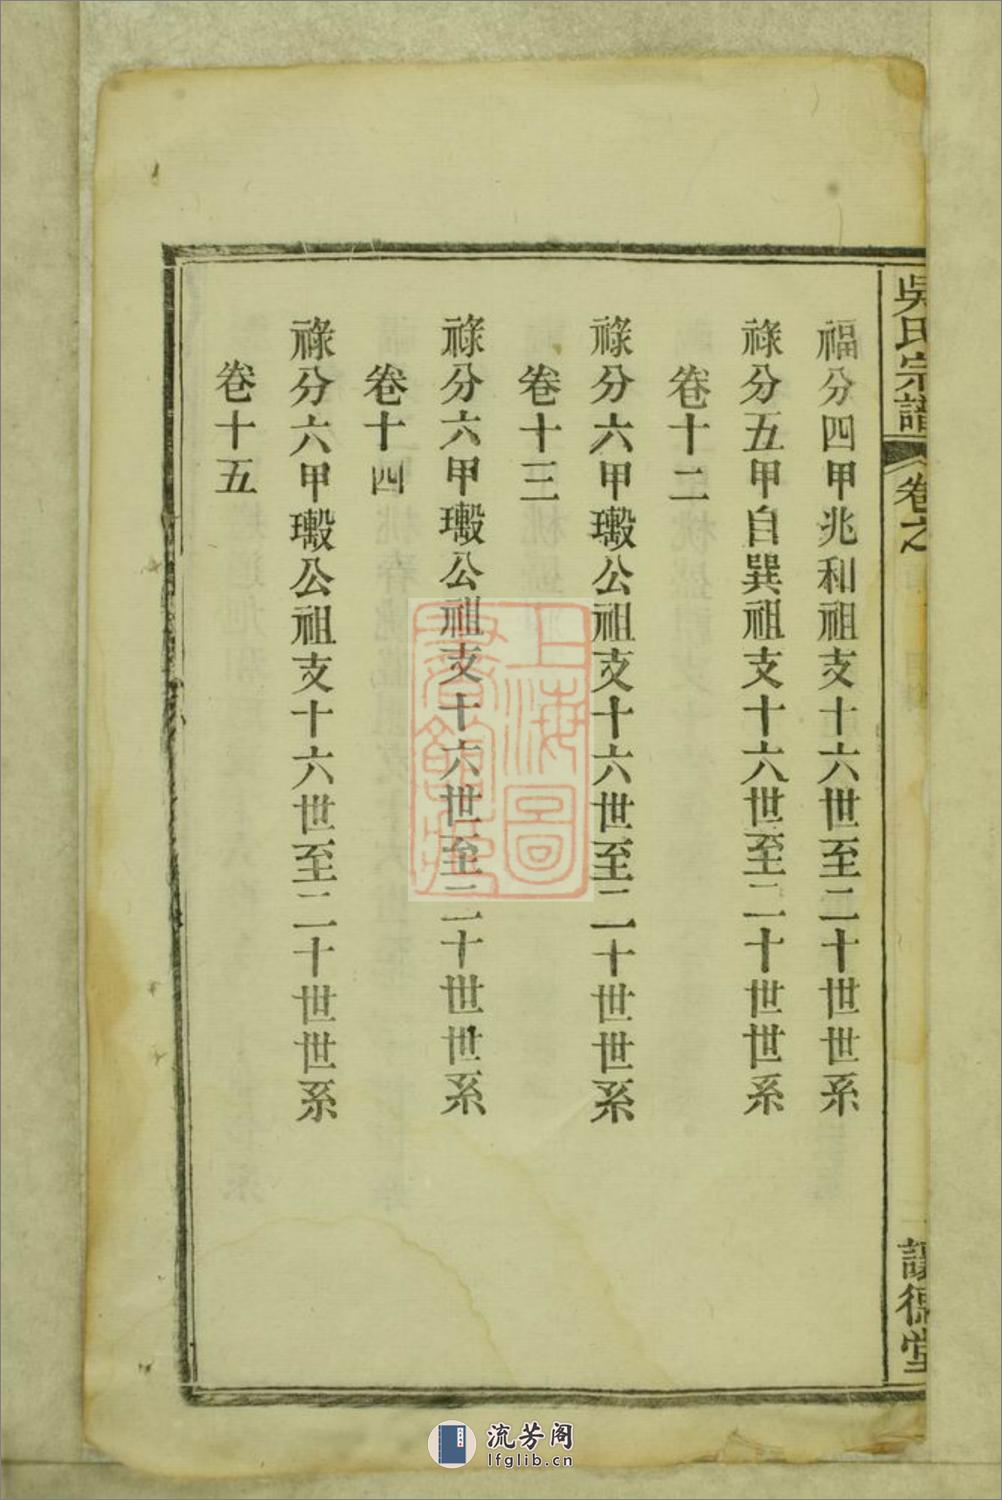 吳氏宗譜
卷之
一
讓德堂
福分四甲兆和祖支十六世至二十世世系
祿分五甲自巽祖支十六世至二十世世系
卷十二
祿分六甲璬公祖支十六世至二十世世系
卷十三
祿分六甲璬公祖支十六世至二十世世系
卷十四
祿分六甲璬公祖支十六世至二十世世系
卷十五
上海圖
書館藏
流芳阁
lfglib.cn